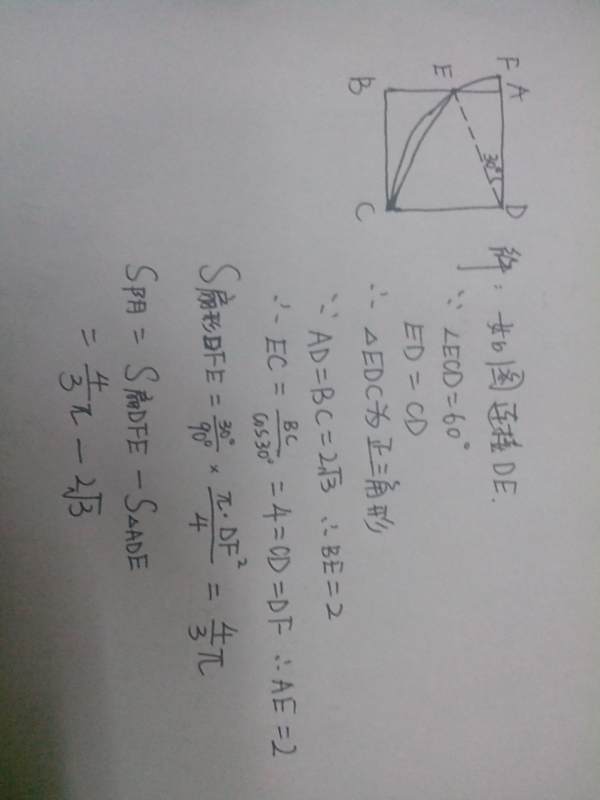 F
A
E
B
30°
D
C
解：如图连接DE.
∵ ∠ECD=60°
ED=CD
∴ △EDC为正三角形
∵ AD=BC=2√3 ∴ BE=2
∴ EC = BC/cos30° = 4=CD=DF ∴ AE=2
S扇形DFE = 30°/90° × π·DF²/4 = 4/3 π
S阴 = S扇DFE - S△ADE
= 4/3 π - 2√3